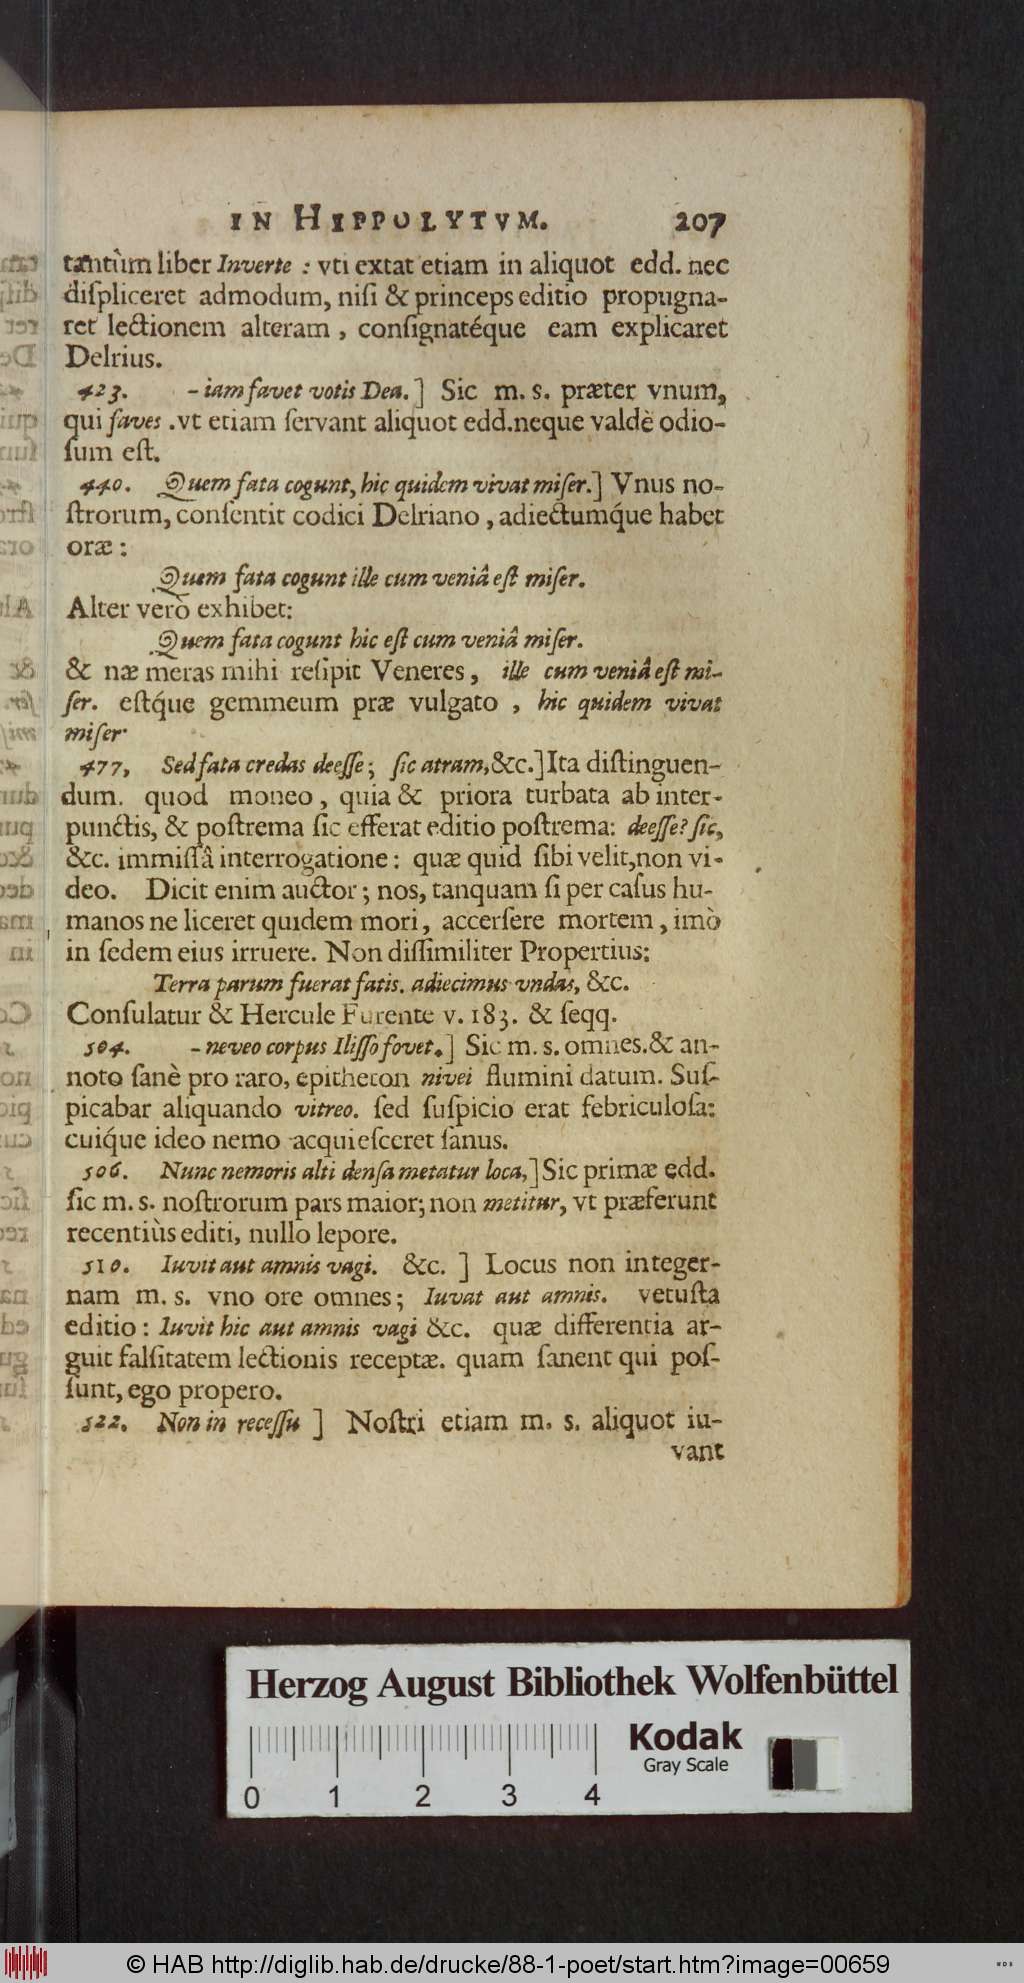 IN HIPPOLYTVM. 207
tantùm liber Inverte : vti extat etiam in aliquot edd. nec
diſpliceret admodum, niſi & princeps editio propugna-
ret lectionem alteram , conſignatéque eam explicaret
Delrius.
423. - iam favet votis Dea.] Sic m. s. præter vnum,
qui faves .vt etiam ſervant aliquot edd.neque valdè odio-
ſum eſt.
440. Quem fata cogunt, hic quidem vivat miſer.] Vnus no-
ſtrorum, conſentit codici Delriano , adiectumq́ue habet
oræ :
Quem fata cogunt ille cum veniâ eſt miſer.
Alter verò exhibet:
Quem fata cogunt hic eſt cum veniâ miſer.
& næ meras mihi reſipit Veneres, ille cum veniâ eſt mi-
ſer. eſtq́ue gemmeum præ vulgato , hic quidem vivat
miſer·
477, Sed fata credas deeſſe; ſic atram,&c.]Ita diſtinguen-
dum. quod moneo, quia & priora turbata ab inter-
punctis, & poſtrema ſic efferat editio poſtrema: deeſſe? ſic,
&c. immiſſâ interrogatione: quæ quid ſibi velit,non vi-
deo. Dicit enim auctor; nos, tanquam ſi per caſus hu-
manos ne liceret quidem mori, accerſere mortem, imò
in ſedem eius irruere. Non diſſimiliter Propertius:
Terra parum fuerat fatis. adiecimus vndas, &c.
Conſulatur & Hercule Furente v. 183. & ſeqq.
504. - neveo corpus Iliſſo fovet.] Sic m. s. omnes.& an-
noto ſanè pro raro, epitheton nivei flumini datum. Suſ-
picabar aliquando vitreo. ſed ſuſpicio erat febriculoſa:
cuiq́ue ideo nemo acquieſceret ſanus.
506. Nunc nemoris alti denſa metatur loca,] Sic primæ edd.
ſic m. s. noſtrorum pars maior; non metitur, vt præferunt
recentiùs editi, nullo lepore.
510. Iuvit aut amnis vagi. &c. ] Locus non integer-
nam m. s. vno ore omnes; Iuvat aut amnis. vetuſta
editio : Iuvit hic aut amnis vagi &c. quæ differentia ar-
guit falſitatem lectionis receptæ. quam ſanent qui poſ-
ſunt, ego propero.
522. Non in receſſu ] Noſtri etiam m. s. aliquot iu-
vant
Herzog August Bibliothek Wolfenbüttel
Kodak
Gray Scale
0 1 2 3 4
© HAB http://diglib.hab.de/drucke/88-1-poet/start.htm?image=00659